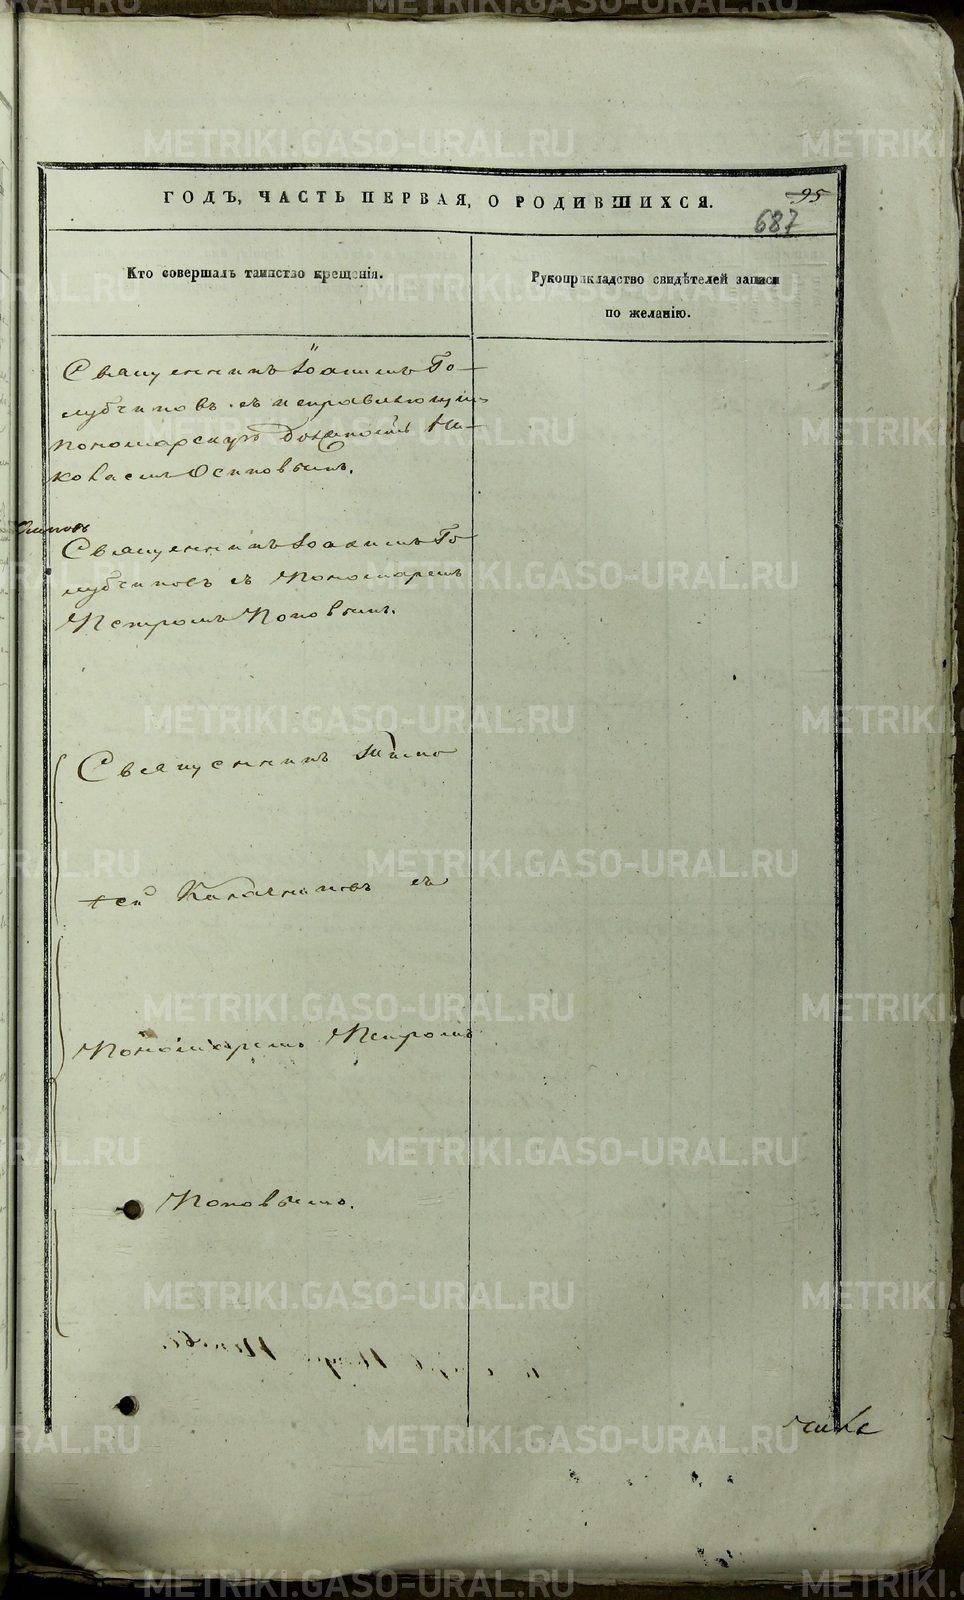 ГОДЪ, ЧАСТЬ ПЕРВАЯ, О РОДИВШИХСЯ.
95
687
Кто совершалъ таинство крещенія.
Рукоприкладство свидѣтелей записи
по желанію.
Священникъ Іоакимъ Го-
лубчиковъ съ исправляющим
пономарскую должность Ни-
колаемъ Осиповымъ.
Священникъ Іоакимъ Го
лубчиковъ съ Пономаремъ
Петромъ Поповымъ.
Священникъ Тимо
фей Калачниковъ съ
Пономаремъ Петромъ
Поповымъ.
METRIKI.GASO-URAL.RU